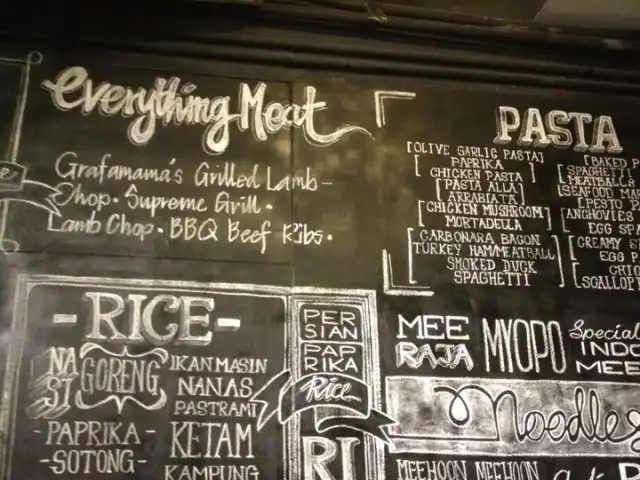 everything Meat
Grafamama's Grilled Lamb-
Chop. Supreme Grill.
Lamb Chop. BBQ Beef Ribs.
PASTA
[OLIVE GARLIC PASTA]
PAPRIKA
CHICKEN PASTA
[PASTA ALLA]
ARRABIATA
[CHICKEN MUSHROOM]
MORTADELLA
CARBONARA BACON
TURKEY HAM/MEATBALL
SMOKED DUCK
SPAGHETTI
[BAKED
SPAGHETTI
MEATBALLS
[SEAFOOD
[PESTO
[ANCHOVIES
EGG
[CREAMY
EGG
SCALLOP
-RICE-
NASI
GORENG
-PAPRIKA-
-SOTONG-
IKAN MASIN
NANAS
PASTRAMI
KETAM
KAMPUNG
PER
SIAN
PAP
RIKA
Rice
RI
MEE
RAJA
MYOPO
Special
INDO
MEE
Noodles
MEEHOON MEEHOON